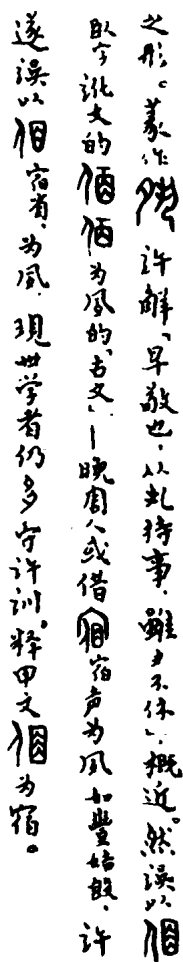 之形。篆作 許解「早敬也，从丮持事，雖夕不休」，概近。然誤以
即今說文的 为夙的「古文」—晚周人或借 宿声为夙如豐姞敃、許
遂誤以 宿省、为夙，現世学者仍多守許訓。释甲文 为宿。